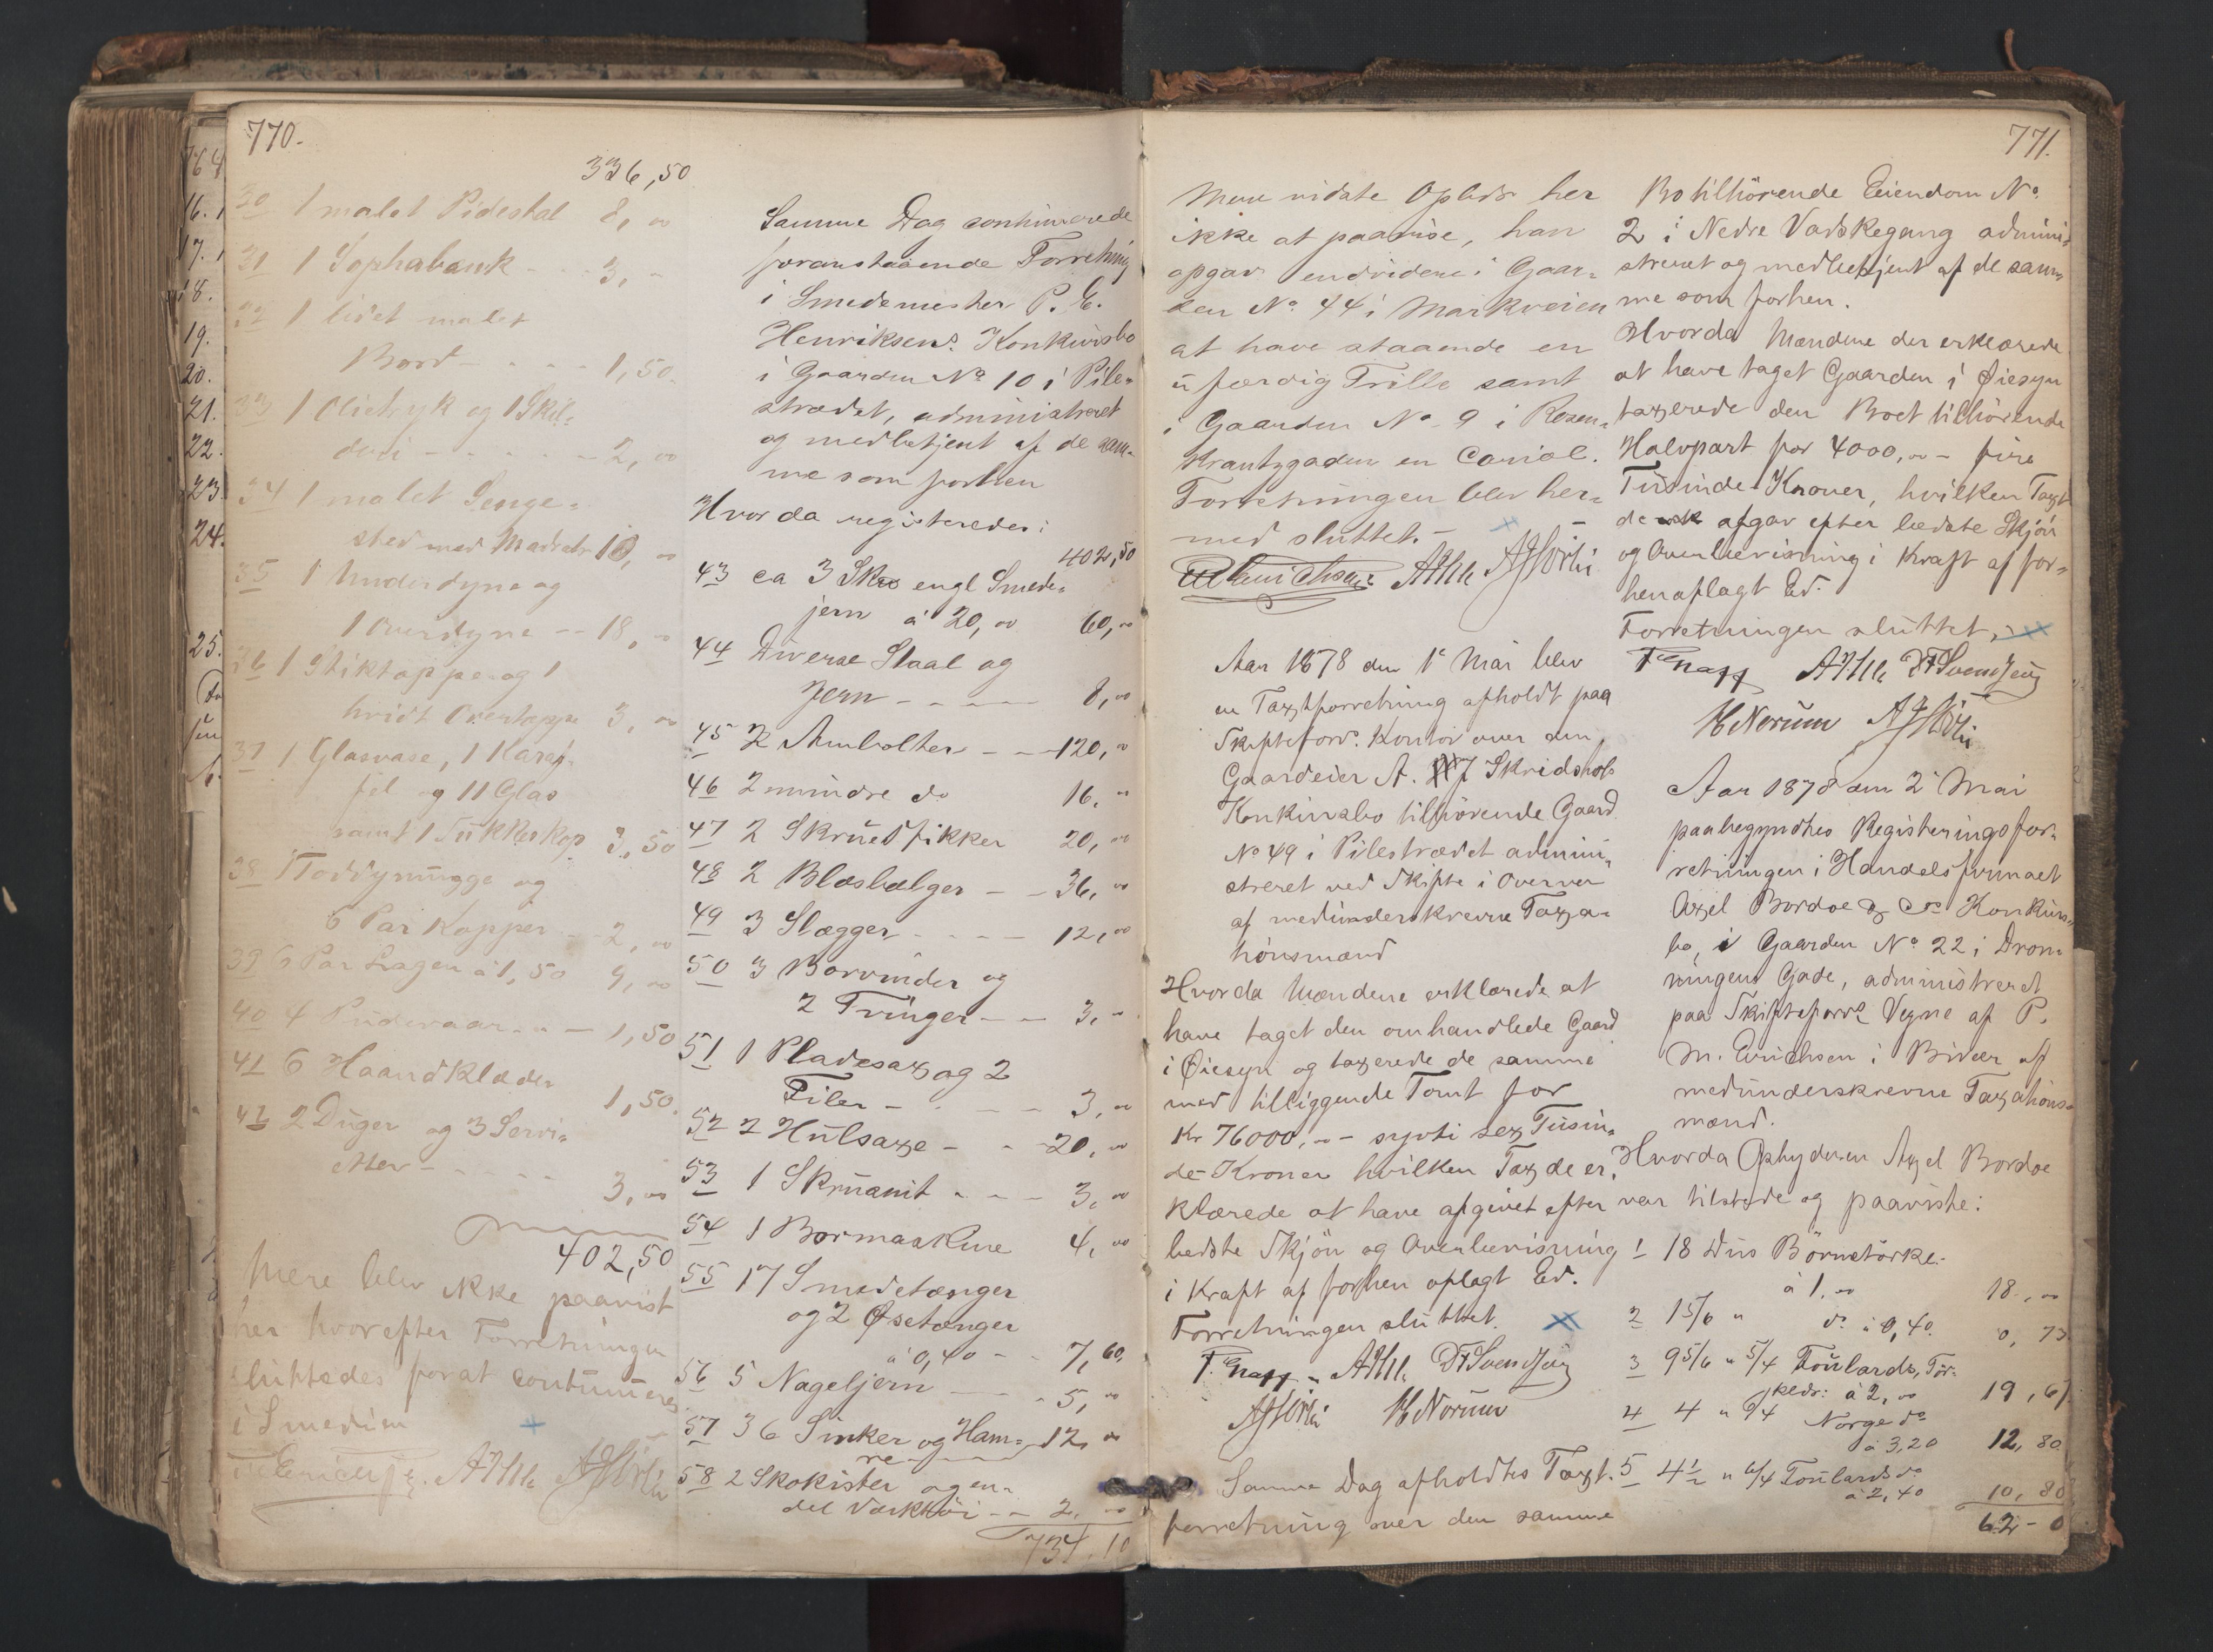 770.
336,50
30 1 malet Pidestal 8,00
31 1 Sophabænk - - 3,-
32 1 lidet malet
Bord - - - 1,50.
33 1 Olietryk og 1 Skil-
deri - - - - - 2,00
34 1 malet Senge-
sted med Madrats 10,00
35 1 Underdyne og
1 Overdyne -- 18,00
36 1 Stiktæppe og 1
hvidt Overtæppe 3,00
37 1 Glasvase, 1 Karaf-
fel og 11 Glas
samt 1 Sukkerkop 3,50
38 1 Toddymugge og
6 Par Kopper - 2,00
39 6 Par Lagen à 1,50 9,00
40 4 Pudevaar - - - 1,50
41 6 Haandklæder
1,50.
42 2 Duger og 3 Servi-
etter - - - - -
3,00
402,50
Mere blev ikke paavist
her hvorefter Forretningen
sluttedes for at continueres
i Smedien
Samme Dag continuerede
foranstaaende Forretning
i Smedemester P. E.
Henriksens Konkursbo
i Gaarden No 10 i Pile-
strædet, administreret
og medbetjent af de sam-
me som forhen
Hvorda registeredes:
402,50
43 ca 3 Sk engl Smede-
jern à 20,00 60,00
44 Diverse Staal og
Jern - - - - - 8,00
45 2 Ambolter - - 120,00
46 2 mindre do 16,00
47 2 Skruestikker 20,00
48 2 Blæsbælger - - 36,00
49 3 Slægger - - - - 12,00
50 3 Borvinder og
2 Tvinger - - 3,00
51 1 Pladesax og 2
Filer - - - - 3,00
52 2 Hulsaxe - - 20,00
53 1 Skruanit - - - 3,00
54 1 Bormaskine 4,00
55 17 Smedetænger
og 2 Øsetænger
à 0,40 - - 7,60.
56 5 Nageljern - - - 5,00
57 36 Sinker og Ham- 12,00
re
58 2 Skokister og en-
del Værktøi - - 2,00
734,10
771.
Mere vidste Opbds her
ikke at paavise, han
opgav endvidere i Gaar-
den No 44 i Markveien
at have staaende en
ufærdig Trille samt
i Gaarden No 9 i Rosen-
krantzgaden en Cariol.
Forretningen blev her-
med sluttet. -
Aar 1878 den 1e Mai blev
en Taxtforretning afholdt paa
Skifteforv. Kontor over den,
Gaardeier A. J Skridshols
Konkursbo tilhørende Gaard
No 49 i Pilestrædet admini-
streret ved Skifte i Overvær
af medunderskrevne Taxa-
tionsmænd
Hvorda Mændene erklærede at
have taget den omhandlede Gaard
i Øiesyn og taxerede de samme
med tilliggende Tomt for
Kr 76000,-- sytti sex Tusin-
de Kroner hvilken Tax de er-
klærede at have afgivet efter
bedste Skjøn og Overbevisning
i Kraft af forhen aflagt Ed.
Forretningen sluttet.
H Norum
Samme Dag afholdtes Taxt-
forretning over den samme
Bo tilhørende Eiendom No
2 i Nedre Vaskegang admini-
streret og medbetjent af de sam-
me som forhen.
Hvorda Mændene der erklærede
at have taget Gaarden i Øiesyn
taxerede den Boet tilhørende
Halvpart for 4000,00 - fire
Tusinde Kroner, hvilken Taxt
de afgav efter bedste Skjøn
og Overbevisning i Kraft af for-
hen aflagt Ed.
Forretningen sluttet.
H Norum
Aar 1878 den 2 Mai
paabegyndtes Registeringsfor-
retningen i Handelsfirmaet
Axel Bordoe & Co Konkurs-
bo, i Gaarden No 22 i Dron-
ningens Gade, administreret
paa Skifteforvs Vegne af P.
M. Erichsen i Bivær af
medunderskrevne Taxations-
mænd.
Hvorda Ophyderen Axel Bordoe
var tilstede og paaviste:
1 18 Dus Børnetørkl.
à 1,00 18,00
2 1 5/6 " do à 0,40. 0,73
3 9 5/6 " 5/4 Foulards, Tør-
klær: à 2,00 19,67
4 4 " 9/4 Norge do
à 3,20 12,80
5 4 1/2 " 6/4 Foulards do
à 2,40 10,80
62-0